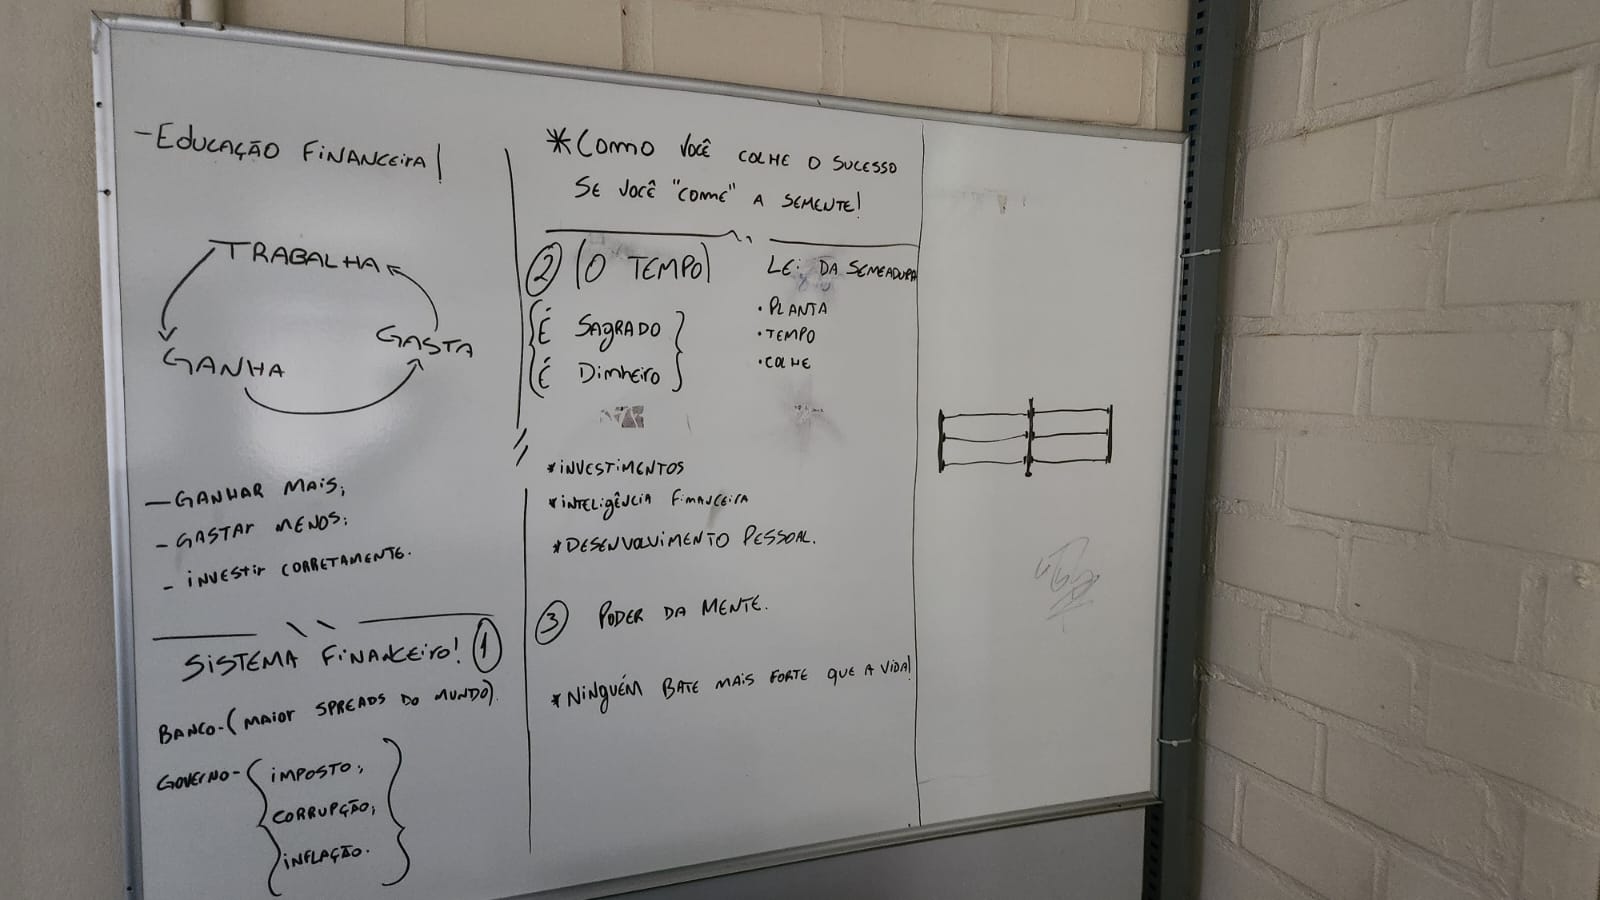 - EDUCAÇÃO FINANCEIRA!
TRABALHA
GANHA
GASTA
- GANHAR MAIS;
- GASTAR MENOS;
- INVESTIR CORRETAMENTE.
SISTEMA FINANCEIRO! 1
BANCO - (MAIOR SPREADS DO MUNDO).
GOVERNO - { IMPOSTO;
CORRUPÇÃO;
INFLAÇÃO. }
* COMO VOCÊ COLHE O SUCESSO
SE VOCÊ "COME" A SEMENTE!
2 (O TEMPO)
{É SAGRADO}
{É Dinheiro}
LEI DA SEMEADURA
• PLANTA
• TEMPO
• COLHE
* INVESTIMENTOS
* INTELIGÊNCIA FINANCEIRA
* DESENVOLVIMENTO PESSOAL.
3 PODER DA MENTE.
* NINGUÉM BATE MAIS FORTE QUE A VIDA!